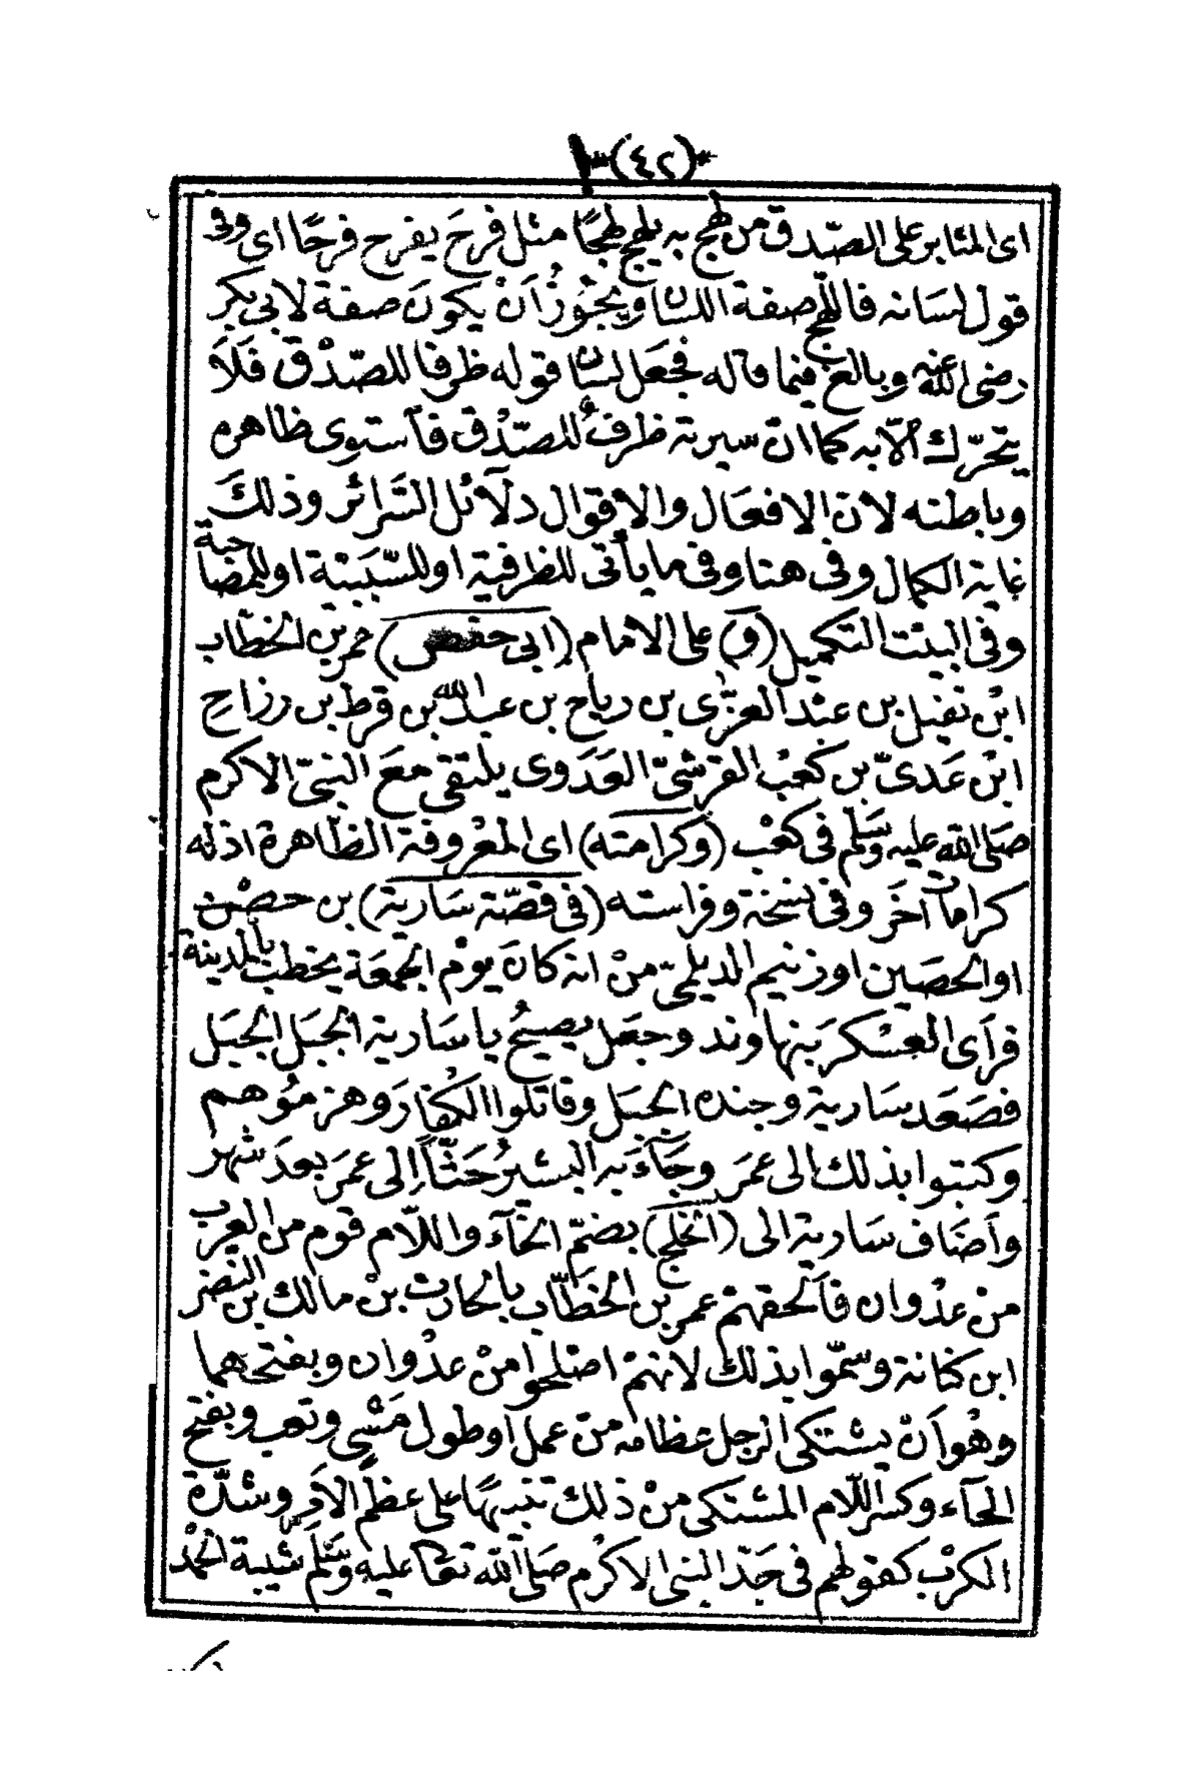 (٤٢)
اى المثابر على الصّدق من لهج به يلهج لهجًا مثل فرحَ يفرح فرحًا اى وفى
قول لسانه فاللّهج صفة اللسان ويجُوز أنْ يكونَ صفة لابى بكر
رضى الله عنه وبالغ فيما قاله فجَعَل لسان قوله ظرفا للصّدْق فَلَا
يتحرّك الّا به كما انّ سيرته ظرفٌ للصّدْق فآستوى ظاهره
وباطنه لانّ الافعَال والاقوال دلَآئل السّرائر وذلكَ
غاية الكمال وفى هنا وفى ما يأتى للظرفية او للسّببيّة او للمصاحبة
وفى البيْت التكميل (و) على الامام (ابى حفص) عمر بن الخطّاب
ابْن نفيل بن عبْد العزّى بن رياح بن عبد الله بن قرط بن رزاحِ
ابْن عَدىّ بن كعْب القرشىّ العَدَوى يلتقى معَ النبىّ الاكرم
صَلّى الله عليه وسَلّم فى كعْب (وكرامته) اى المعْروفة الظّاهرة اذ له
كرامات أخَر وفى نسخة وفراسته (فى قصّة سَارية) بن حصْن
او الحصَين او زنيم الديلمىّ منْ انه كانَ يوْم الجمعَة يخطب بالمدينة
فرَأى العسْكرَ بنهاوند وجعَل يصيحُ يا سَارية الجبَل الجبَل
فصَعَد سَارية وجنده الجبَل وقاتلوا الكُفارَ وهزمُوهم
وكتبوا بذلك الى عمَر وجَآءَ به البشيرُ حَثّاً إلى عمَر بعدَ شهر
وأضَاف سَارية الى (الخلج) بضمّ الخآء واللّام قوم من العرب
منْ عدْوان فآلحقهمْ عمر بن الخَطّاب بالحارث بنْ مالك بن النضر
ابن كنانة وسمّوا بذلك لانهمْ اختلجوا منْ عدْوان وبفتحهما
وهْو أنْ يشتكى الرجل عظامه منْ عمل او طول مَشْىٍ وتعب وبفتح
الخآء وكسر اللّام المشتكى منْ ذلك تنبيهًا على عظم الأمر وشدّة
الكرْب كقولهم فى جَدّ النبى الاكرْم صَلّى الله تعَالى عليه وسَلّم شيبة الحمْد